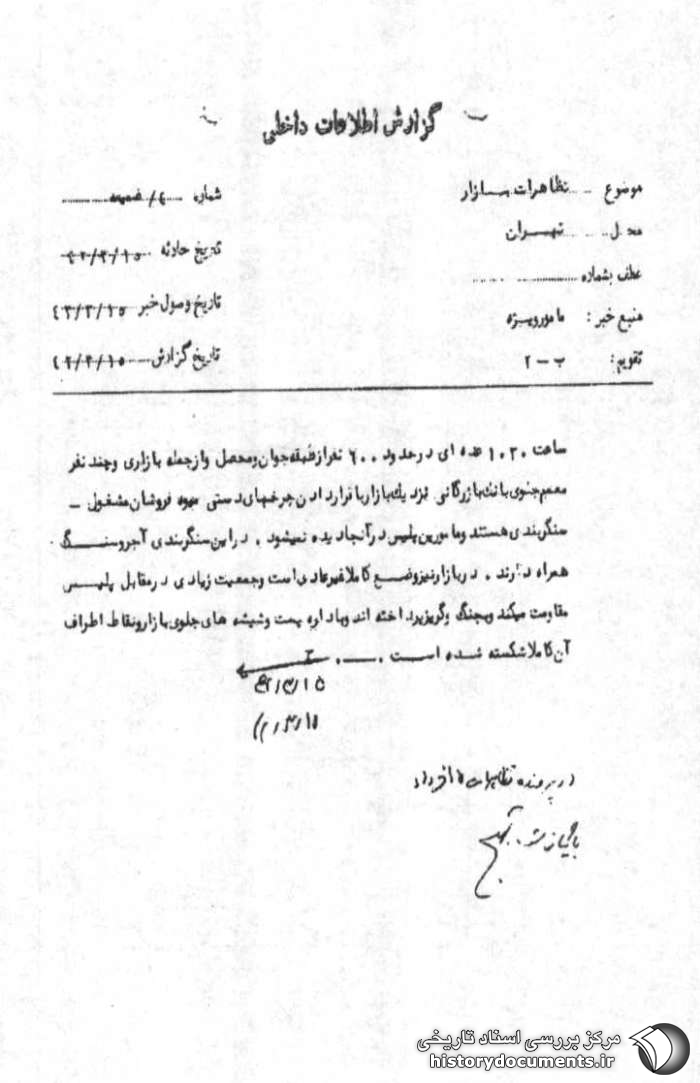 گزارش اطلاعات داخلی
موضوع تظاهرات بازار
شماره ضمیمه
محل تهران
تاریخ حادثه ۴۲/۳/۱۵
عطف بشماره
تاریخ وصول خبر ۴۲/۳/۱۵
منبع خبر: مامور ویژه
تاریخ گزارش ۴۲/۳/۱۵
تقویم: ب - ۲
ساعت ۱۰۳۰ عده ای در حدود ۶۰۰ نفر از طبقه جوان و محصل و از جمله بازاری و چند نفر
معمم جنوی بانک بازرگانی نزدیک بازار با قرار دادن چرخهای دستی میوه فروشان مشغول -
سنگربندی هستند و مامورین پلیس در آنجا دیده نمیشود . در این سنگربندی آجر و سنگ
همراه دارند . در بازار نیز وضع کاملا غیر عادی است و جمعیت زیادی در مقابل پلیس
مقاومت میکند و بجنگ و گریز پرداخته اند و اداره پست و شیشه های جلوی بازار و نقاط اطراف
آن کاملا شکسته شده است .
۴۲/۳/۱۵
در پرونده تظاهرات ۱۵ خرداد
بایگانی شود
مرکز بررسی اسناد تاریخی
historydocuments.ir